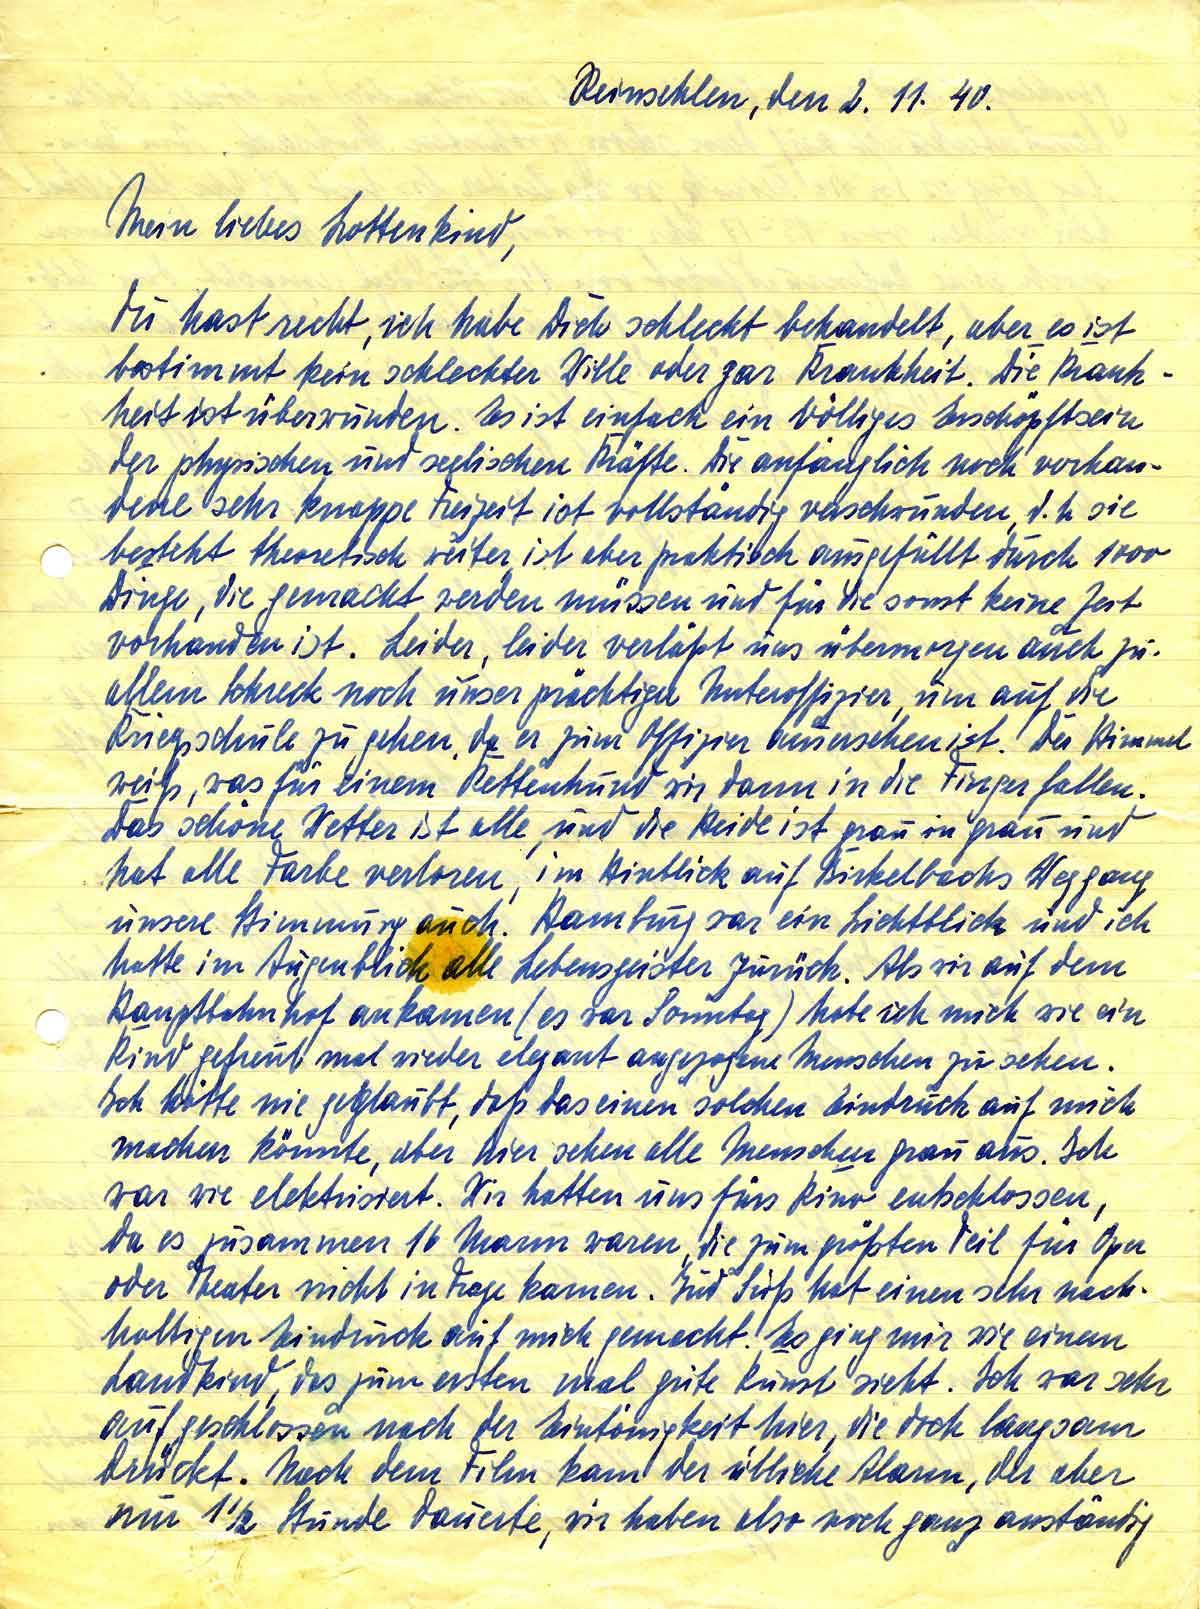 Reinsehlen, den 2. 11. 40.
Mein liebes Lottenkind,
Du hast recht, ich habe Dich schlecht behandelt, aber es ist
bestimmt kein schlechter Wille oder gar Krankheit. Die Krank-
heit ist überwunden. Es ist einfach ein völliges Erschöpftsein
der physischen und seelischen Kräfte. Die anfänglich noch vorhan-
dene sehr knappe Freizeit ist vollständig verschwunden, d. h sie
besteht theoretisch weiter, ist aber praktisch ausgefüllt durch 1000
Dinge, die gemacht werden müssen und für die sonst keine Zeit
vorhanden ist. Leider, leider verläßt uns übermorgen auch zu
allem Schreck noch unser prächtiger Unteroffizier, um auf die
Kriegsschule zu gehen, da er zum Offizier ausersehen ist. Der Himmel
weiß, was für einem Kettenhund wir dann in die Finger fallen.
Das schöne Wetter ist alle, und die Heide ist grau in grau und
hat alle Farbe verloren, im Hinblick auf Birkelbachs Weggang
unsere Stimmung auch. Hamburg war ein Lichtblick und ich
hatte im Augenblick alle Lebensgeister zurück. Als wir auf dem
Hauptbahnhof ankamen (es war Sonntag) habe ich mich wie ein
Kind gefreut mal wieder elegant angezogene Menschen zu sehen.
Ich hätte nie geglaubt, daß das einen solchen Eindruck auf mich
machen könnte, aber hier sehen alle Menschen grau aus. Ich
war wie elektrisiert. Wir hatten uns fürs Kino entschlossen,
da es zusammen 16 Mann waren, die zum größten Teil für Oper
oder Theater nicht in Frage kamen. Jud Süß hat einen sehr nach-
haltigen Eindruck auf mich gemacht. Es ging mir wie einem
Landkind, das zum ersten mal gute Kunst sieht. Ich war sehr
aufgeschlossen nach der Eintönigkeit hier, die doch langsam
drückt. Nach dem Film kam der übliche Alarm, der aber
nur 1 1/2 Stunde dauerte, wir haben also noch ganz anständig